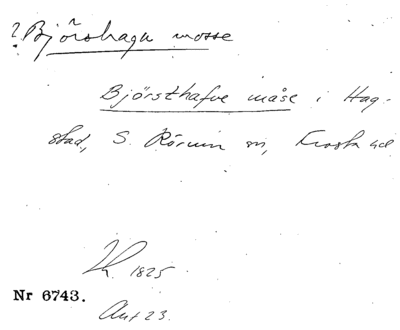 ? Björshaga mosse
Björsthafve måse i Hag-
stad, S. Rörum sn, Frosta hd
1825
Nr 6743.
Akt 23.